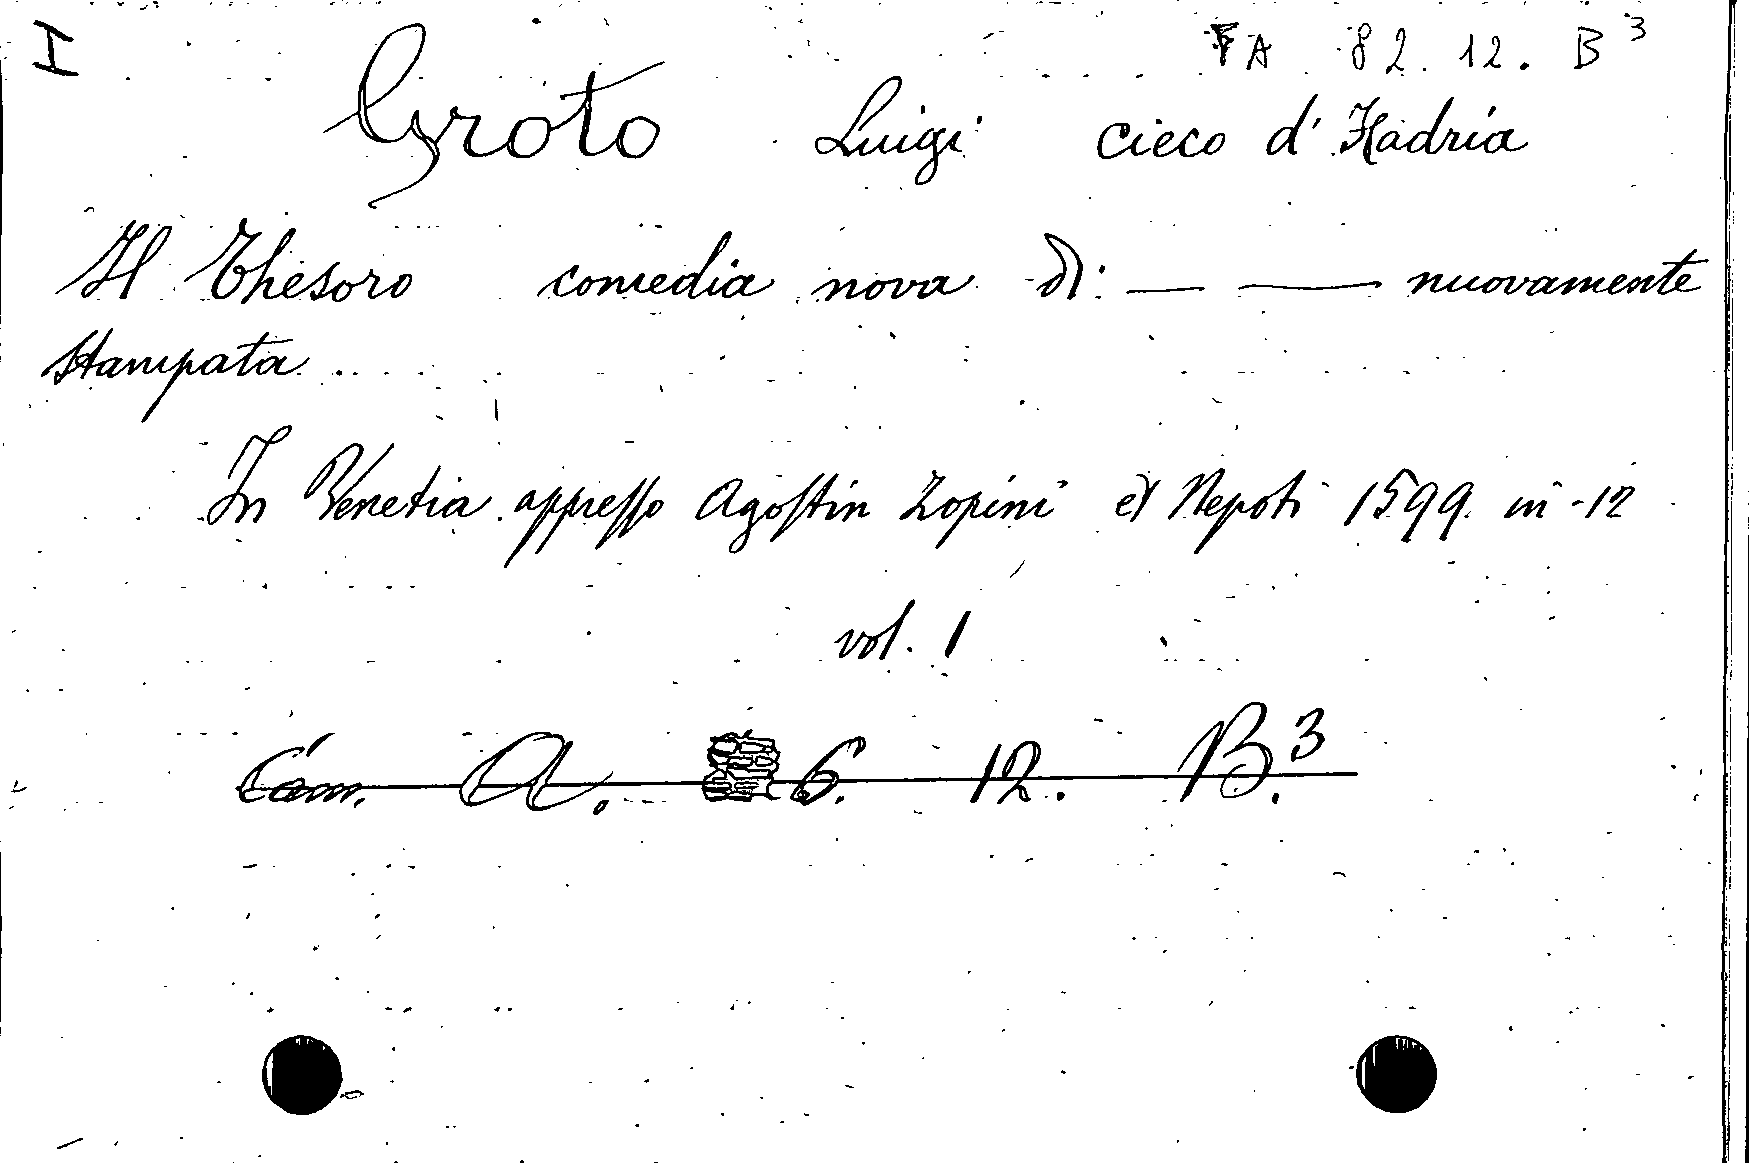 I FA 82. 12. B³
Groto Luigi cieco d'Hadria
Il Thesoro comedia nova di: — — nuovamente
stampata
In Venetia appresso Agostin Zopini et Nepoti 1599. in-12
vol. 1
Cam. A. 6. 12. B.³